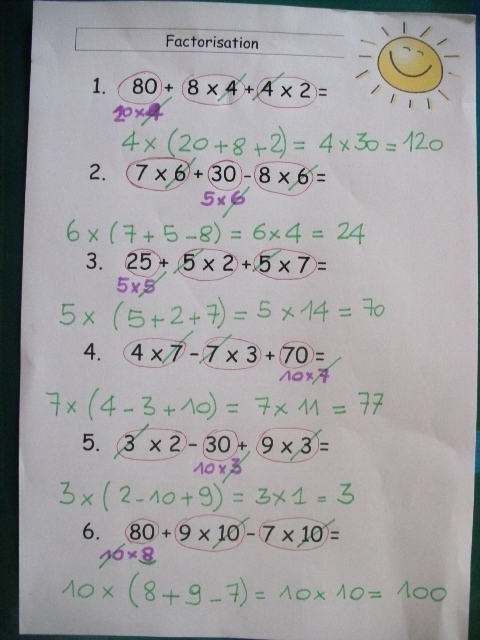 Factorisation
1. 80 + 8 x 4 + 4 x 2 =
20 x 4
4 x (20 + 8 + 2) = 4 x 30 = 120
2. 7 x 6 + 30 - 8 x 6 =
5 x 6
6 x (7 + 5 - 8) = 6 x 4 = 24
3. 25 + 5 x 2 + 5 x 7 =
5 x 5
5 x (5 + 2 + 7) = 5 x 14 = 70
4. 4 x 7 - 7 x 3 + 70 =
10 x 7
7 x (4 - 3 + 10) = 7 x 11 = 77
5. 3 x 2 - 30 + 9 x 3 =
10 x 3
3 x (2 - 10 + 9) = 3 x 1 = 3
6. 80 + 9 x 10 - 7 x 10 =
10 x 8
10 x (8 + 9 - 7) = 10 x 10 = 100